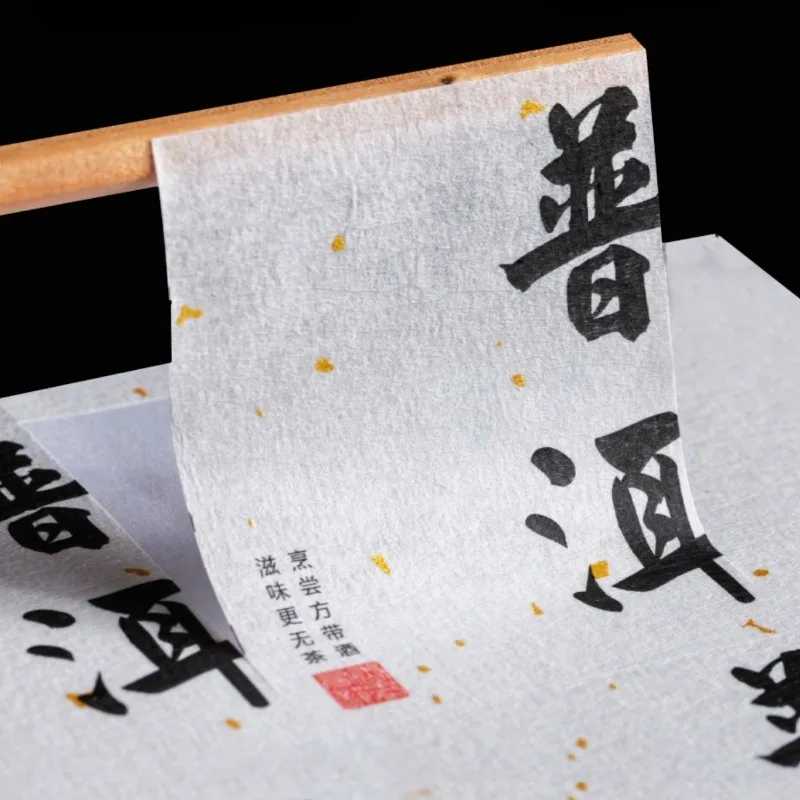 普洱
烹尝方带酒
滋味更无茶
普洱